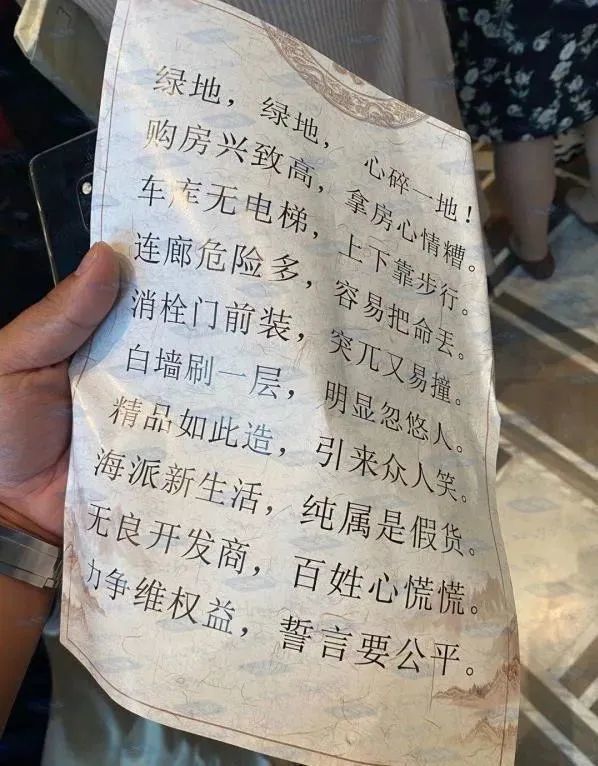 绿地，绿地，心碎一地！
购房兴致高，拿房心情糟。
车库无电梯，上下靠步行。
连廊危险多，容易把命丢。
消栓门前装，突兀又易撞。
白墙刷一层，明显忽悠人。
精品如此造，引来众人笑。
海派新生活，纯属是假货。
无良开发商，百姓心慌慌。
力争维权益，誓言要公平。